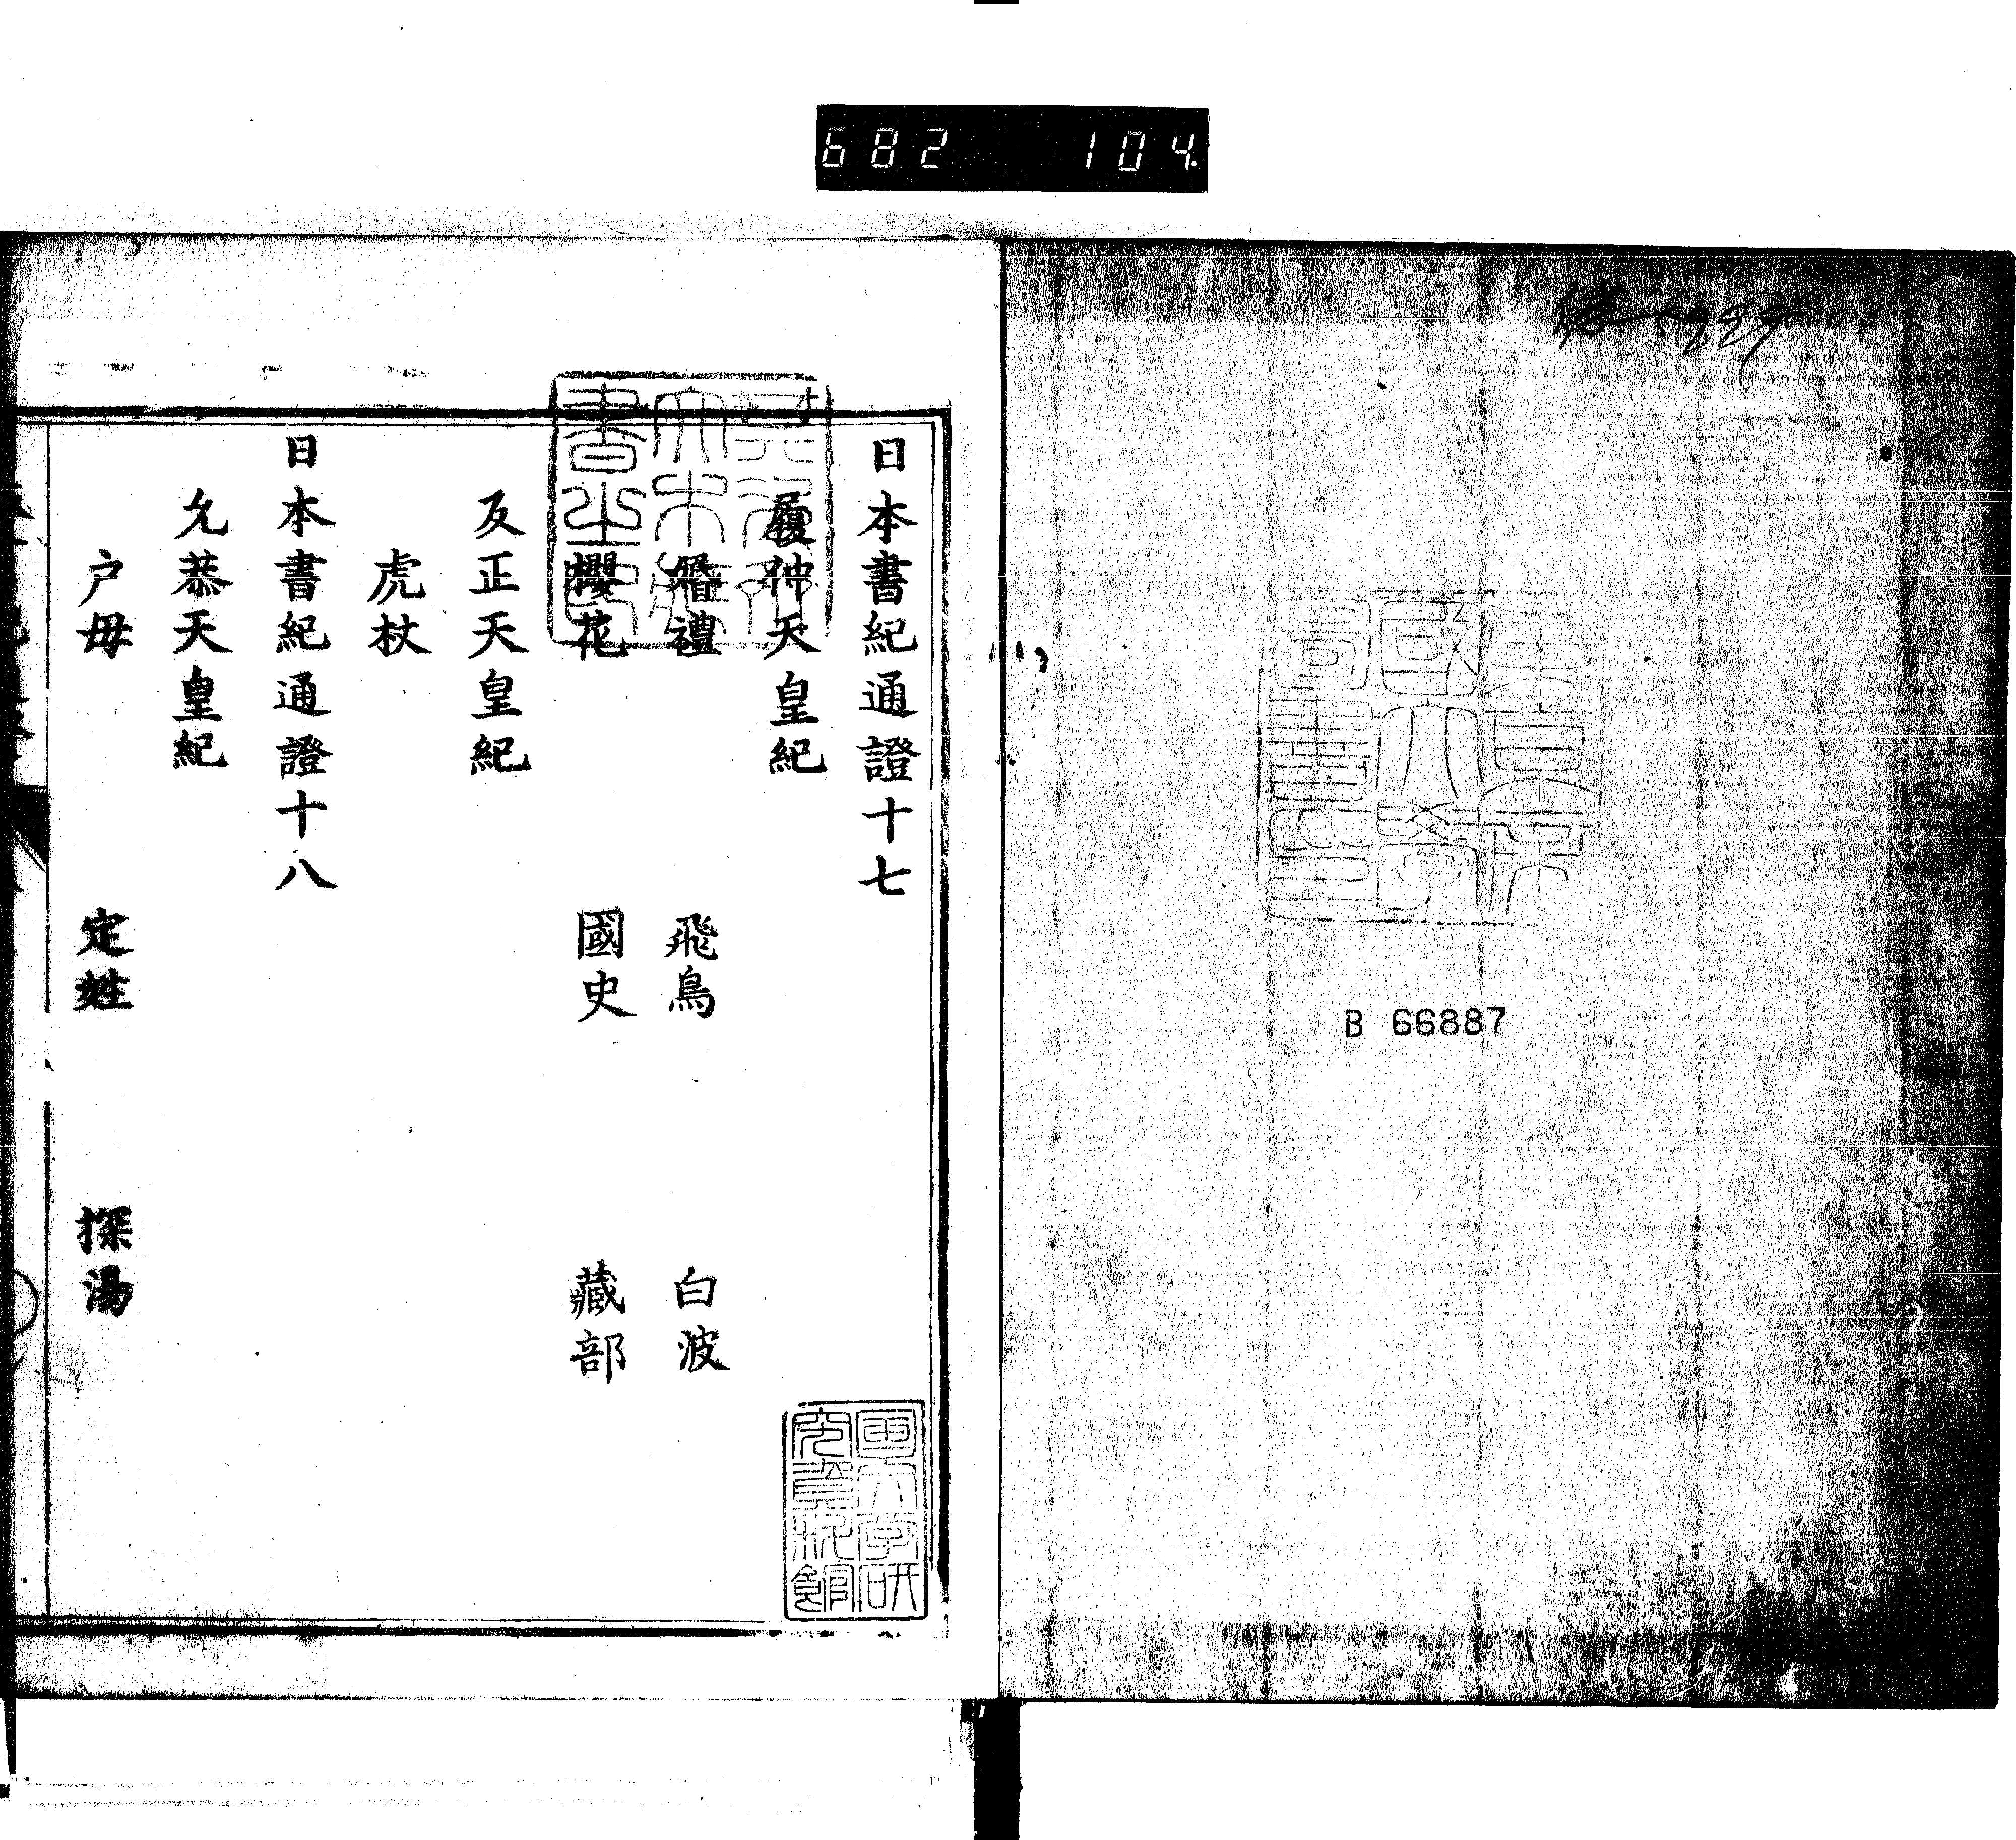 682 104
B 66887
日本書紀通證十七
履仲天皇紀
婚禮 飛鳥 白波
櫻花 國史 藏部
反正天皇紀
虎杖
日本書紀通證十八
允恭天皇紀
戸母 定姓 探湯
國文學研
究資料館